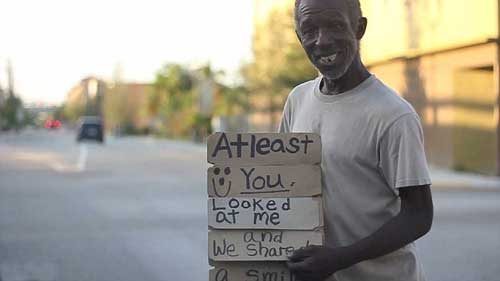 Atleast
You.
Looked
at me
and
We shared
a smi